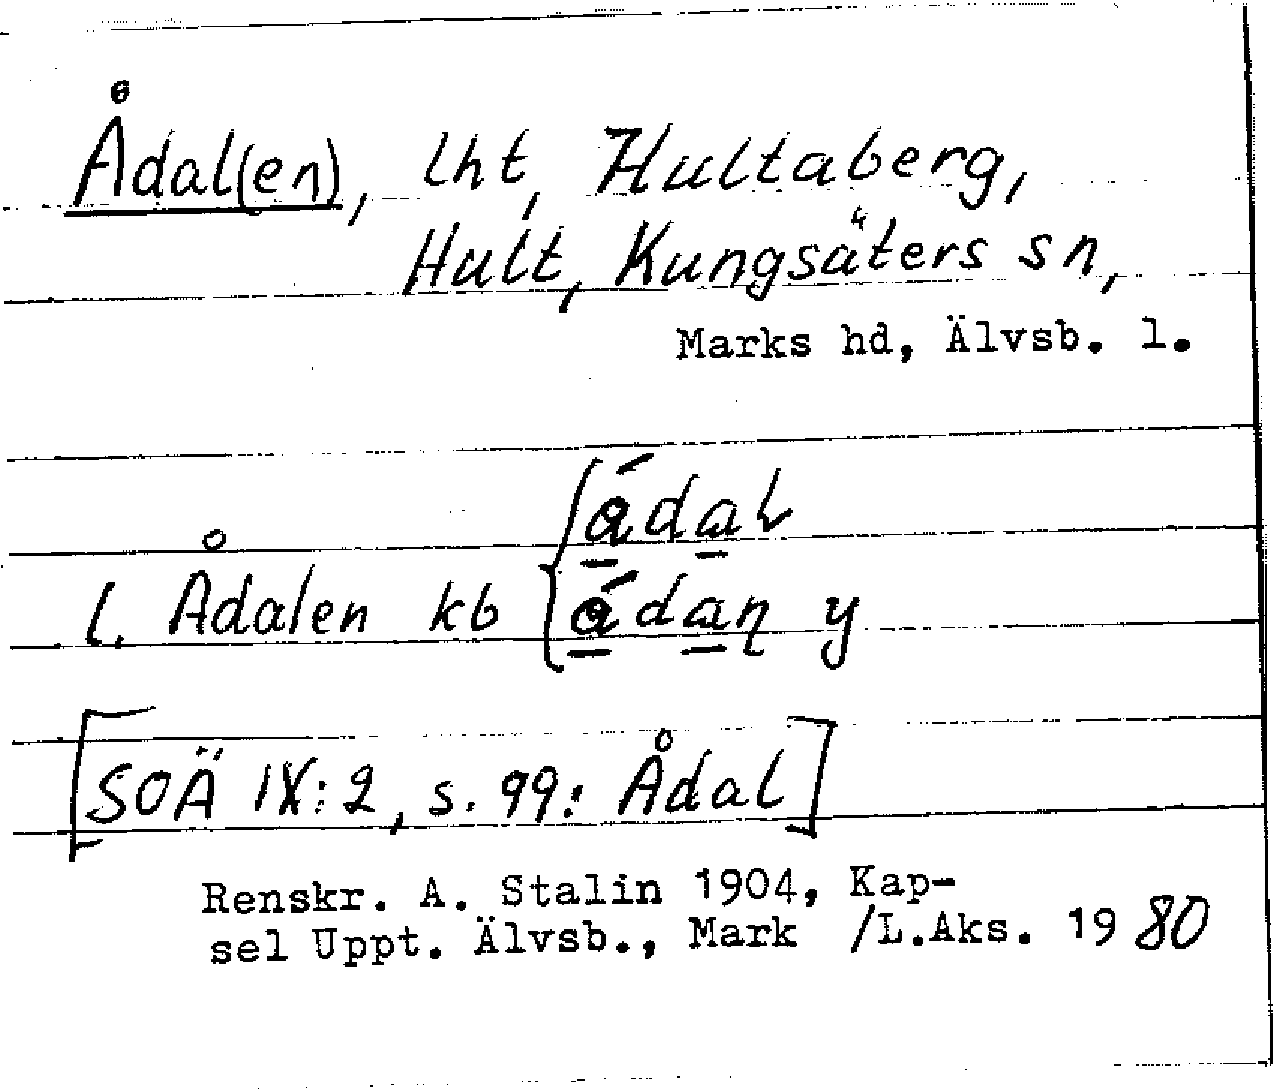 Ådal(en), lht, Hultaberg,
Hult, Kungsäters sn,
Marks hd, Älvsb. l.
ådaL
l. Ådalen kb
ådaɳ y
[SOÄ IX:2, s. 99: Ådal]
Renskr. A. Stalin 1904, Kap-
sel Uppt. Älvsb., Mark /L.Aks. 1980